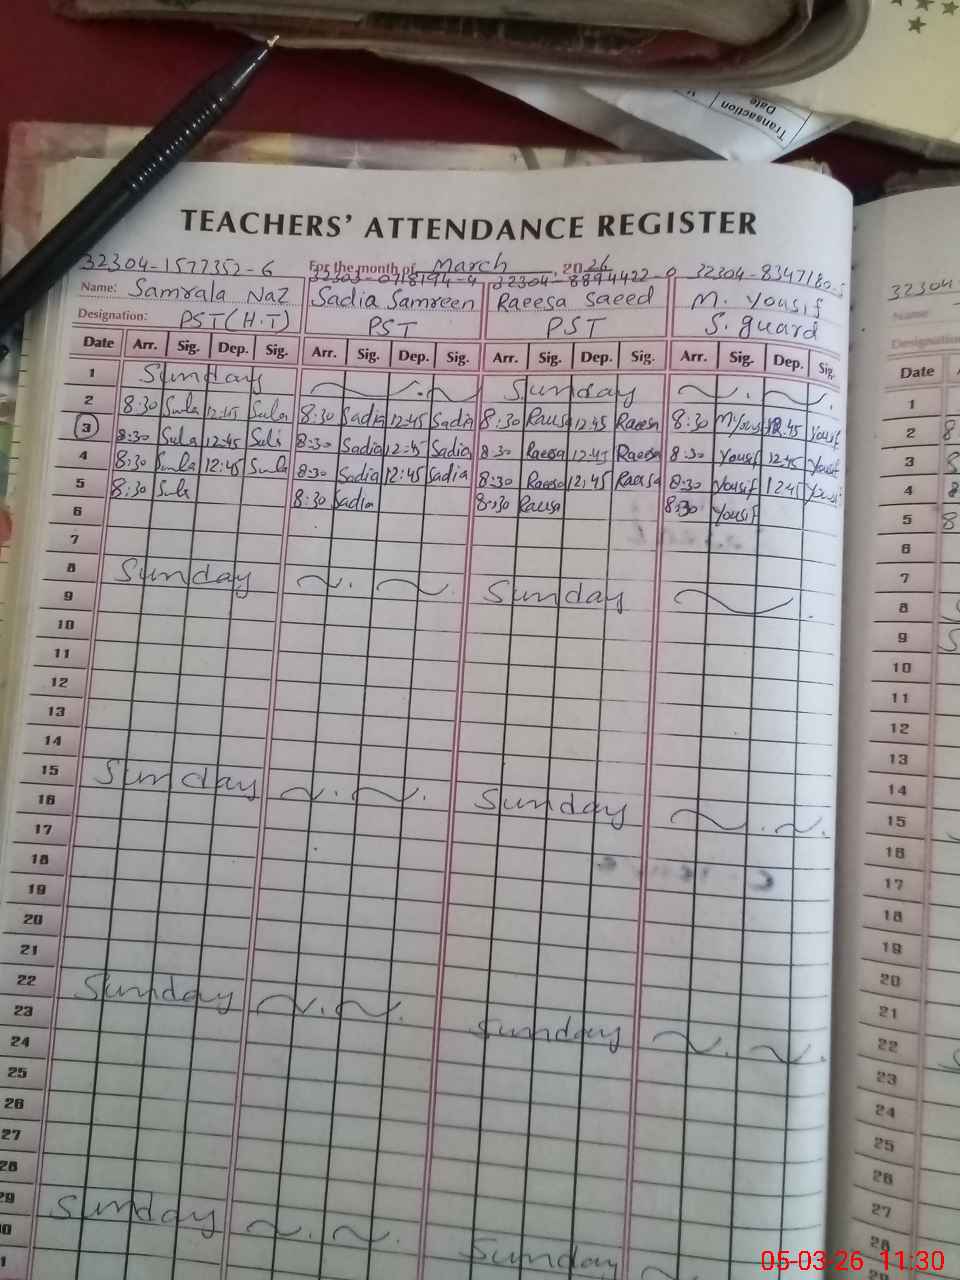 Transaction
Date
TEACHERS' ATTENDANCE REGISTER
For the month of March, 2026
32304-1577352-6 32303-0718194-4 32304-8894422-0 32304-8347180-5
Name: Samrala Naz Sadia Samreen Raeesa Saeed M. Yousif
Designation: PST (H.T) PST PST S. guard
Date Arr. Sig. Dep. Sig. Arr. Sig. Dep. Sig. Arr. Sig. Dep. Sig. Arr. Sig. Dep. Sig.
1 Sunday Sunday
2 8:30 12:45 8:30 Sadia 12:45 Sadia 8:30 Raeesa 12:45 Raeesa 8:30 M.Yousif 12:45 Yousif
3 8:30 12:45 8:30 Sadia 12:45 Sadia 8:30 Raeesa 12:45 Raeesa 8:30 Yousif 12:45 Yousif
4 8:30 12:45 8:30 Sadia 12:45 Sadia 8:30 Raeesa 12:45 Raeesa 8:30 Yousif 12:45 Yousif
5 8:30 8:30 Sadia 8:30 Raeesa 8:30 Yousif
6
7
8 Sunday Sunday
9
10
11
12
13
14
15 Sunday Sunday
16
17
18
19
20
21
22 Sunday Sunday
23
24
25
26
27
28
29 Sunday Sunday
32304
Name:
Designation
Date
1
2 8
3
4
5 8
6
7
8
9
10
11
12
13
14
15
16
17
18
19
20
21
22
23
24
25
26
27
28
05-03-26 11:30